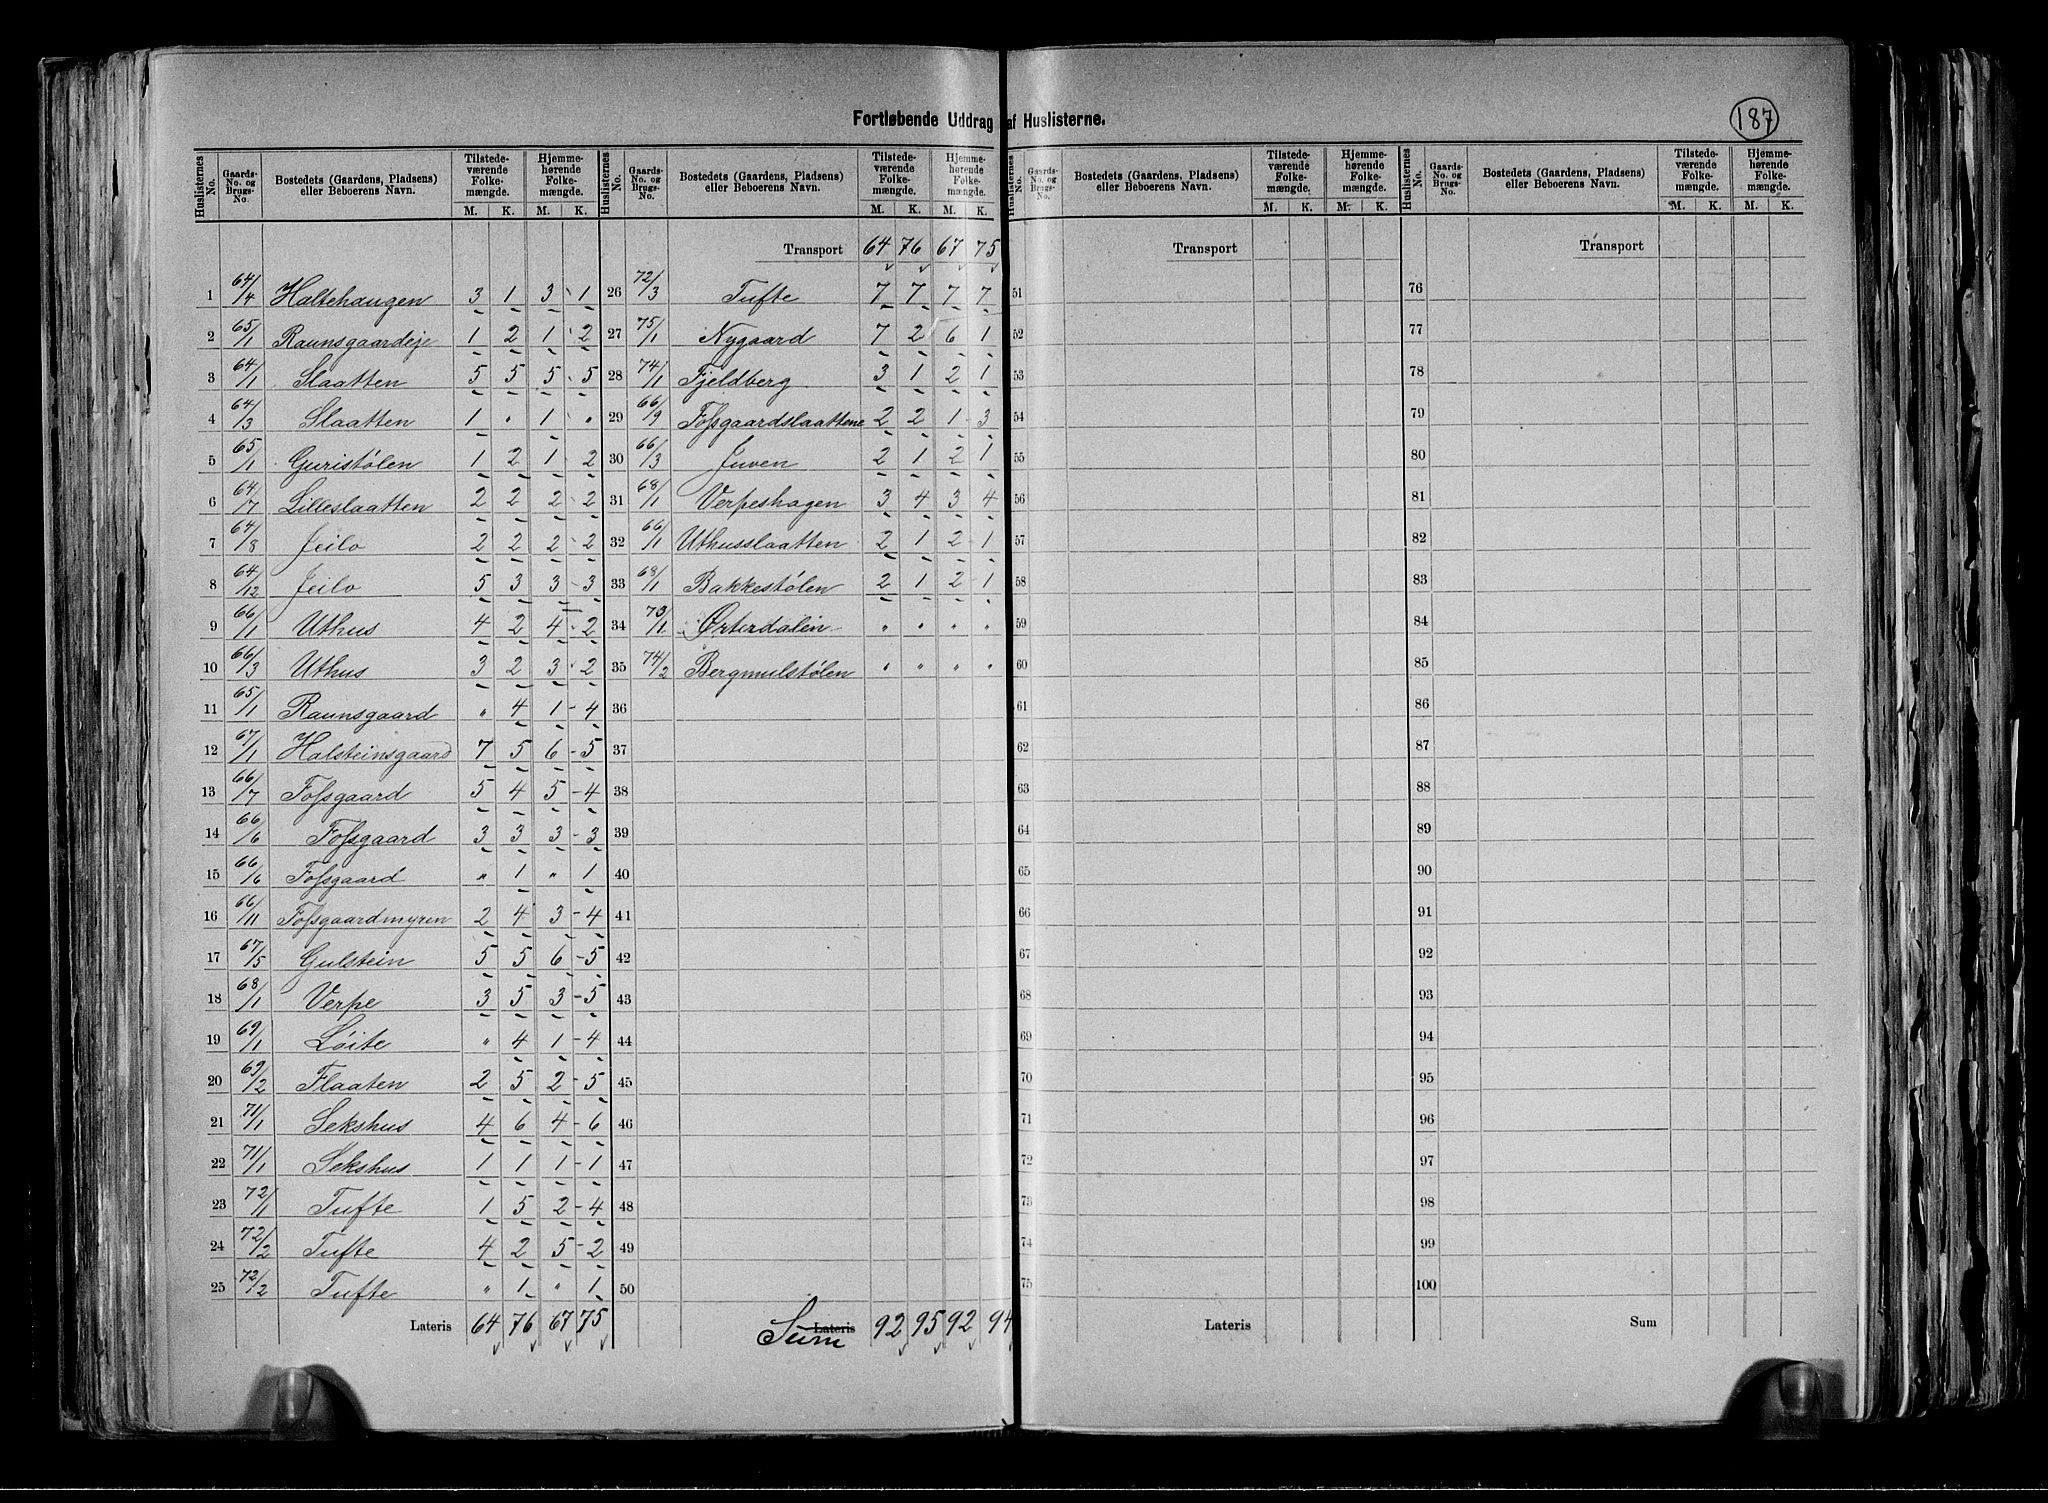 187
Fortløbende Uddrag af Huslisterne.
Huslisternes No. | Gaards-No. og Brugs-No. | Bostedets (Gaardens, Pladsens) eller Beboerens Navn. | Tilstedeværende Folkemængde. M. K. | Hjemmehørende Folkemængde. M. K.
1 64/4 Haltehaugen 3 1 3 1
2 65/1 Raunsgaardeje 1 2 1 2
3 64/1 Slaatten 5 5 5 5
4 64/3 Slaatten 1 " 1 "
5 65/1 Guristølen 1 2 1 2
6 64/7 Lilleslaatten 2 2 2 2
7 64/8 Jeilo 2 2 2 2
8 64/12 Jeilo 5 3 3 3
9 66/1 Uthus 4 2 4 2
10 66/3 Uthus 3 2 3 2
11 65/1 Raunsgaard " 4 1 4
12 67/1 Halsteinsgaard 7 5 6 5
13 66/7 Fosgaard 5 4 5 4
14 66/6 Fosgaard 3 3 3 3
15 66/6 Fosgaard " 1 " 1
16 66/11 Fosgaardmyren 2 4 3 4
17 67/5 Gulstein 5 5 6 5
18 68/1 Verpe 3 5 3 5
19 69/1 Løite " 4 1 4
20 69/2 Flaaten 2 5 2 5
21 71/1 Sekshus 4 6 4 6
22 71/1 Sekshus 1 1 1 1
23 72/1 Tufte 1 5 2 4
24 72/2 Tufte 4 2 5 2
25 72/2 Tufte " 1 " 1
Lateris 64 76 67 75
Huslisternes No. | Gaards-No. og Brugs-No. | Bostedets (Gaardens, Pladsens) eller Beboerens Navn. | Tilstedeværende Folkemængde. M. K. | Hjemmehørende Folkemængde. M. K.
Transport 64 76 67 75
26 72/3 Tufte 7 7 7 7
27 75/1 Nygaard 7 2 6 1
28 74/1 Fjeldberg 3 1 2 1
29 66/9 Fosgaardslaattene 2 2 1 3
30 66/3 Juven 2 1 2 1
31 68/1 Verpeshagen 3 4 3 4
32 66/1 Uthusslaatten 2 1 2 1
33 68/1 Bakkestølen 2 1 2 1
34 73/1 Ørterdalen " " " "
35 74/2 Bergmulstølen " " " "
36
37
38
39
40
41
42
43
44
45
46
47
48
49
50
Lateris Sum 92 95 92 94
Huslisternes No. | Gaards-No. og Brugs-No. | Bostedets (Gaardens, Pladsens) eller Beboerens Navn. | Tilstedeværende Folkemængde. M. K. | Hjemmehørende Folkemængde. M. K.
Transport
51
52
53
54
55
56
57
58
59
60
61
62
63
64
65
66
67
68
69
70
71
72
73
74
75
Lateris
Huslisternes No. | Gaards-No. og Brugs-No. | Bostedets (Gaardens, Pladsens) eller Beboerens Navn. | Tilstedeværende Folkemængde. M. K. | Hjemmehørende Folkemængde. M. K.
Transport
76
77
78
79
80
81
82
83
84
85
86
87
88
89
90
91
92
93
94
95
96
97
98
99
100
Sum